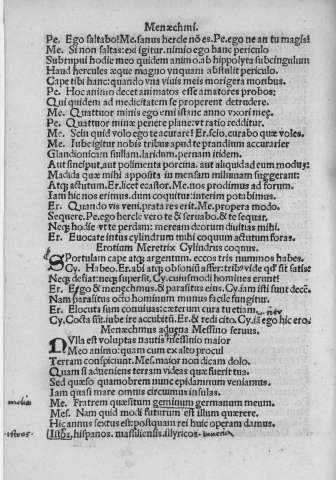 Menæchmi.
Pe. Ego saltabo? Me. sanus hercle nō es. Pe. ego ne an tu magis?
Me. Si non saltas: exi igitur. nimio ego hanc periculo
Subripui hodie meo quidem animo. ab hippolyta subcingulum
Haud hercules æque magno vnquam abstulit periculo.
Cape tibi hanc: quando vna viuis meis morigera moribus.
Pe. Hoc animo decet animatos esse amatores probos;
Qui quidem ad medicitatem se properent detrudere.
Me. Quattuor minis ego emi istanc anno vxori meę.
Pe. Quattuor minæ periere plane: vt ratio redditur.
Me. Scin quid volo ego te acurare? Er. scio. curabo quæ voles.
Me. Iube igitur nobis tribus apud te prandium accurarier
Glandionicam suillam. laridum. pernam itidem.
Aut sinciput. aut polimenta porcina. aut aliquid ad eum modum:
Madida quæ mihi apposita in mensam miluinam suggerant:
Atq; actutum. Er. licet ecastor. Me. nos prodimus ad forum.
Iam hic nos erimus. dum coquitur: interim potabimus.
Er. Quando vis veni. prata res erit. Me. propera modo.
Sequere. Pe. ego hercle vero te & seruabo. & te sequar.
Neq; hodie vt te perdam: meream deorum diuitias mihi.
Er. Euocate intus cylindrum mihi coquum actutum foras.
Erotium Meretrix Cylindrus coquus.
SPortulam cape atq; argentum. eccos tris nummos habes.
Cy. Habeo. Er. abi atq; obsoniū affer: tribᵒ vide qd̄ sit satis:
Neq; defiat: neq; supersit. Cy. cuiusmodi homines erunt?
Er. Ego & menechmus. & parasitus eius. Cy. iam isti sunt decē.
Nam parasitus octo hominum munus facile fungitur.
Er. Elocuta sum conuiuas: cæterum cura tu etiam.
Cy. Cocta sūt. iube ire accubitū. Er. & redi cito. Cy. iā ego hic ero.
Menæchmus aduena Messino seruus.
NVlla est voluptas nautis messinio maior
Meo animo: quam cum ex alto procul
Terram conspiciunt. Mes. maior non dicam dolo.
Quam si adueniens terram videas quæ fuerit tua.
Sed quæso quamobrem nunc epidamnum venimus.
Iam quasi mare omnis circumus insulas.
Me. Fratrem quæsitum geminum germanum meum.
Mes. Nam quid modi futurum est illum quærere.
Hic annus sextus est: postquam rei huic operam damus.
Istbos, hispanos. massilienses. illyricos.
istros.